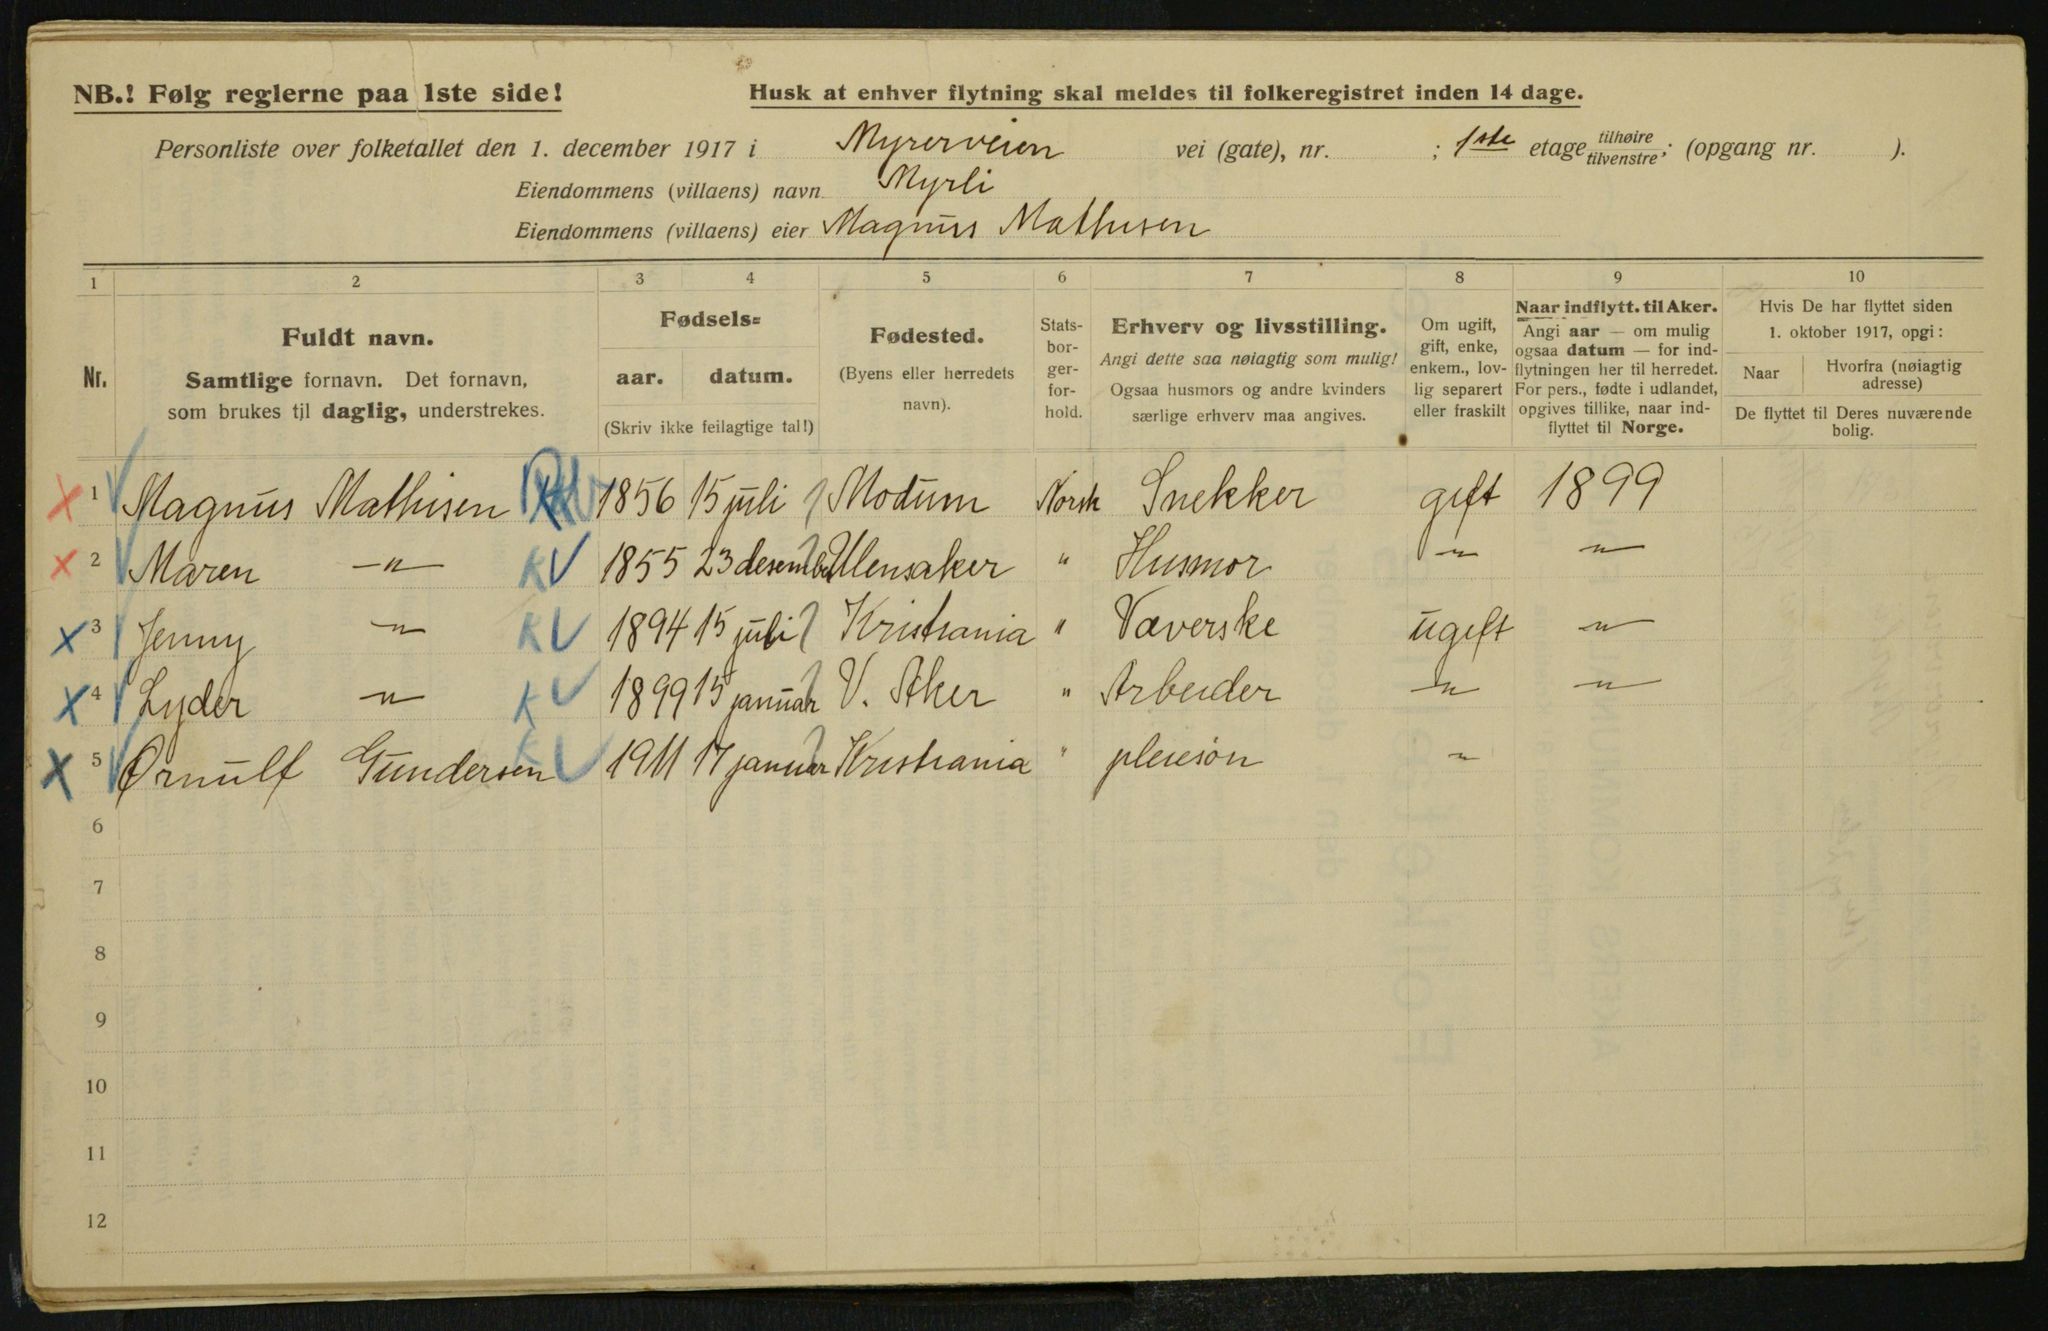 NB.! Følg reglerne paa 1ste side! Husk at enhver flytning skal meldes til folkeregistret inden 14 dage.
Personliste over folketallet den 1. december 1917 i Myrerveien vei (gate), nr. ; 1ste etage tilhøire tilvenstre; (opgang nr. ).
Eiendommens (villaens) navn Myrli
Eiendommens (villaens) eier Magnus Mathisen
1 2 3 4 5 6 7 8 9 10
Nr.
Fuldt navn.
Samtlige fornavn. Det fornavn,
som brukes til daglig, understrekes.
Fødsels-
aar. datum.
(Skriv ikke feilagtige tal!)
Fødested.
(Byens eller herredets
navn).
Stats-
bor-
ger-
for-
hold.
Erhverv og livsstilling.
Angi dette saa nøiagtig som mulig!
Ogsaa husmors og andre kvinders
særlige erhverv maa angives.
Om ugift,
gift, enke,
enkem., lov-
lig separert
eller fraskilt
Naar indflytt. til Aker.
Angi aar — om mulig
ogsaa datum — for ind-
flytningen her til herredet.
For pers., fødte i udlandet,
opgives tillike, naar ind-
flyttet til Norge.
Hvis De har flyttet siden
1. oktober 1917, opgi:
Naar
Hvorfra (nøiagtig
adresse)
De flyttet til Deres nuværende
bolig.
1 Magnus Mathisen 1856 15 juli Modum Norsk Snekker gift 1899
2 Maren —"— KV 1855 23 desember Ulensaker " Husmor —"— —"—
3 Jenny —"— KV 1894 15 juli Kristiania " Væverske ugift —"—
4 Lyder —"— KV 1899 15 januar V. Aker " Arbeider —"— —"—
5 Ørnulf Gundersen KV 1911 17 januar Kristiania " pleiesøn —"—
6
7
8
9
10
11
12